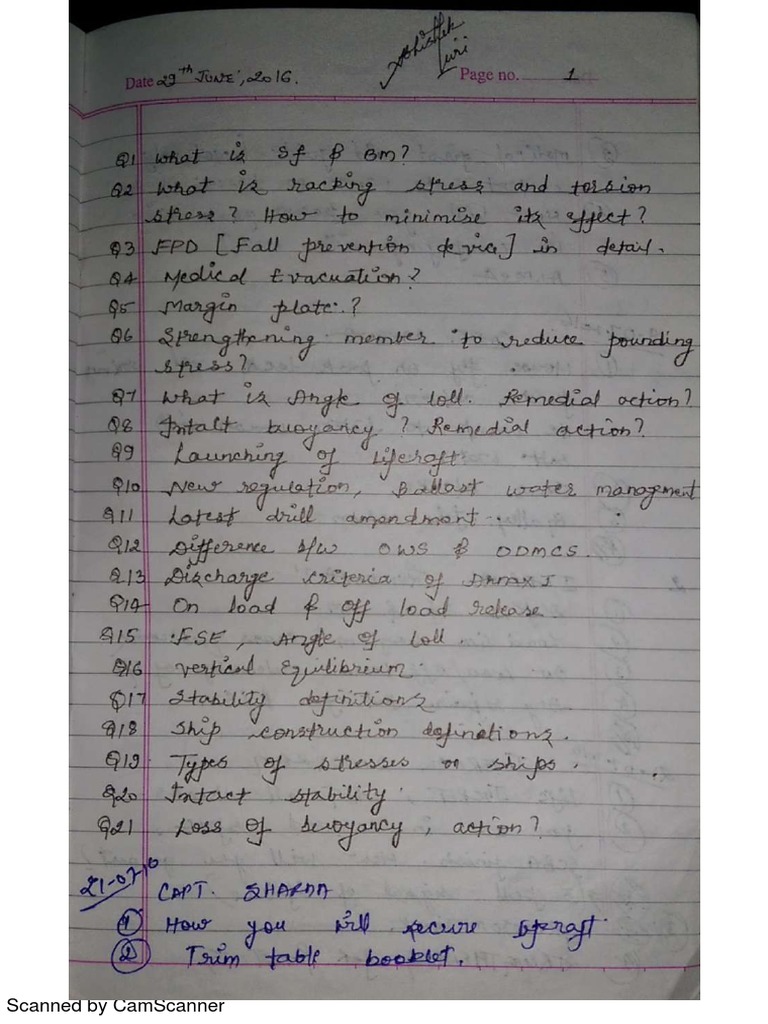 Abhishek
Puri
Date 29th JUNE, 2016.
Page no. 1
Q1 What is Sf & BM?
Q2 What is racking stress and torsion
stress? How to minimise its effect?
Q3 FPD [Fall prevention device] in detail.
Q4 Medical Evacuation?
Q5 Margin plate.?
Q6 Strengthening member to reduce pounding
stress?
Q7 What is Angle of loll. Remedial action?
Q8 Intact buoyancy? Remedial action?
Q9 Launching of Liferaft.
Q10 New regulation, Ballast water management
Q11 Latest drill amendment.
Q12 Difference b/w OWS & ODMCS.
Q13 Discharge criteria of Annex I
Q14 On load & off load release.
Q15 FSE, Angle of Loll.
Q16 Vertical Equilibrium.
Q17 Stability definitions
Q18 Ship construction definetions.
Q19 Types of stresses on ships.
Q20 Intact stability.
Q21 Loss of buoyancy, action?
21-07-16
CAPT. SHARMA
1 How you will secure liferaft.
2 Trim table booklet.
Scanned by CamScanner